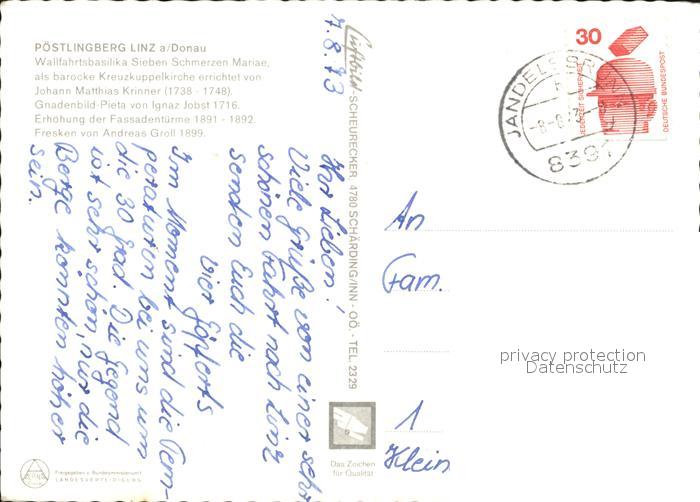 PÖSTLINGBERG LINZ a/Donau
Wallfahrtsbasilika Sieben Schmerzen Mariae,
als barocke Kreuzkuppelkirche errichtet von
Johann Matthias Krinner (1738 - 1748).
Gnadenbild-Pieta von Ignaz Jobst 1716.
Erhöhung der Fassadentürme 1891 - 1892.
Fresken von Andreas Groll 1899.
7.8.73
Ihr Lieben!
Viele Grüße von einer sehr
schönen Fahrt nach Linz
senden Euch die
vier Göpferts
Im Moment sind die Tem
peraturen bei uns um
die 30 Grad. Die Gegend
ist sehr schön, nur die
Berge könnten höher
sein.
Luftbild SCHEURECKER 4780 SCHÄRDING/INN - OÖ. - TEL. 2329
30
JEDERZEIT SICHERHEIT
DEUTSCHE BUNDESPOST
JANDELSBRUNN
8391
An
Fam.
privacy protection
Datenschutz
1
Klein
Das Zeichen
für Qualität
Freigegeben v. Bundesministerium f.
LANDESVERTEIDIGUNG